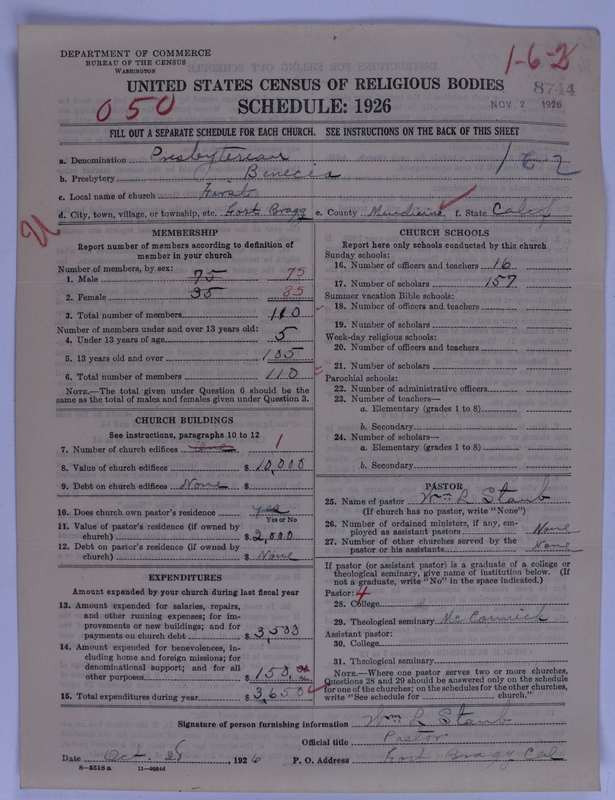 DEPARTMENT OF COMMERCE
BUREAU OF THE CENSUS
WASHINGTON
1-6-2
UNITED STATES CENSUS OF RELIGIOUS BODIES
8744
050
SCHEDULE: 1926
NOV 2 1926
FILL OUT A SEPARATE SCHEDULE FOR EACH CHURCH. SEE INSTRUCTIONS ON THE BACK OF THIS SHEET
a. Denomination Presbyterian
162
b. Presbytery Benecia
c. Local name of church First
d. City, town, village, or township, etc. Fort Bragg e. County Mendicino f. State Calif
U
MEMBERSHIP
Report number of members according to definition of member in your church
Number of members, by sex:
1. Male 75 75
2. Female 35 35
3. Total number of members 110
Number of members under and over 13 years old:
4. Under 13 years of age 5
5. 13 years old and over 105
6. Total number of members 110
NOTE.—The total given under Question 6 should be the same as the total of males and females given under Question 3.
CHURCH BUILDINGS
See instructions, paragraphs 10 to 12
7. Number of church edifices One 1
8. Value of church edifices $ 10,000
9. Debt on church edifices None $
10. Does church own pastor's residence yes
Yes or No
11. Value of pastor's residence (if owned by church) $ 2,000
12. Debt on pastor's residence (if owned by church) $ None
EXPENDITURES
Amount expended by your church during last fiscal year
13. Amount expended for salaries, repairs, and other running expenses; for improvements or new buildings; and for payments on church debt $ 3,500
14. Amount expended for benevolences, including home and foreign missions; for denominational support; and for all other purposes $ 150.
15. Total expenditures during year $ 3,650
CHURCH SCHOOLS
Report here only schools conducted by this church
Sunday schools:
16. Number of officers and teachers 16
17. Number of scholars 157
Summer vacation Bible schools:
18. Number of officers and teachers
19. Number of scholars
Week-day religious schools:
20. Number of officers and teachers
21. Number of scholars
Parochial schools:
22. Number of administrative officers
23. Number of teachers—
a. Elementary (grades 1 to 8)
b. Secondary
24. Number of scholars—
a. Elementary (grades 1 to 8)
b. Secondary
PASTOR
25. Name of pastor Wm R Staub
(If church has no pastor, write "None")
26. Number of ordained ministers, if any, employed as assistant pastors None
27. Number of other churches served by the pastor or his assistants None
If pastor (or assistant pastor) is a graduate of a college or theological seminary, give name of institution below. (If not a graduate, write "No" in the space indicated.)
Pastor: 4
28. College
29. Theological seminary McCormick
Assistant pastor:
30. College
31. Theological seminary
NOTE.—Where one pastor serves two or more churches, Questions 28 and 29 should be answered only on the schedule for one of the churches; on the schedules for the other churches, write "See schedule for church."
Signature of person furnishing information Wm R Staub
Official title Pastor
Date Oct. 28, 1926 P. O. Address Fort Bragg Cal
8—5518a